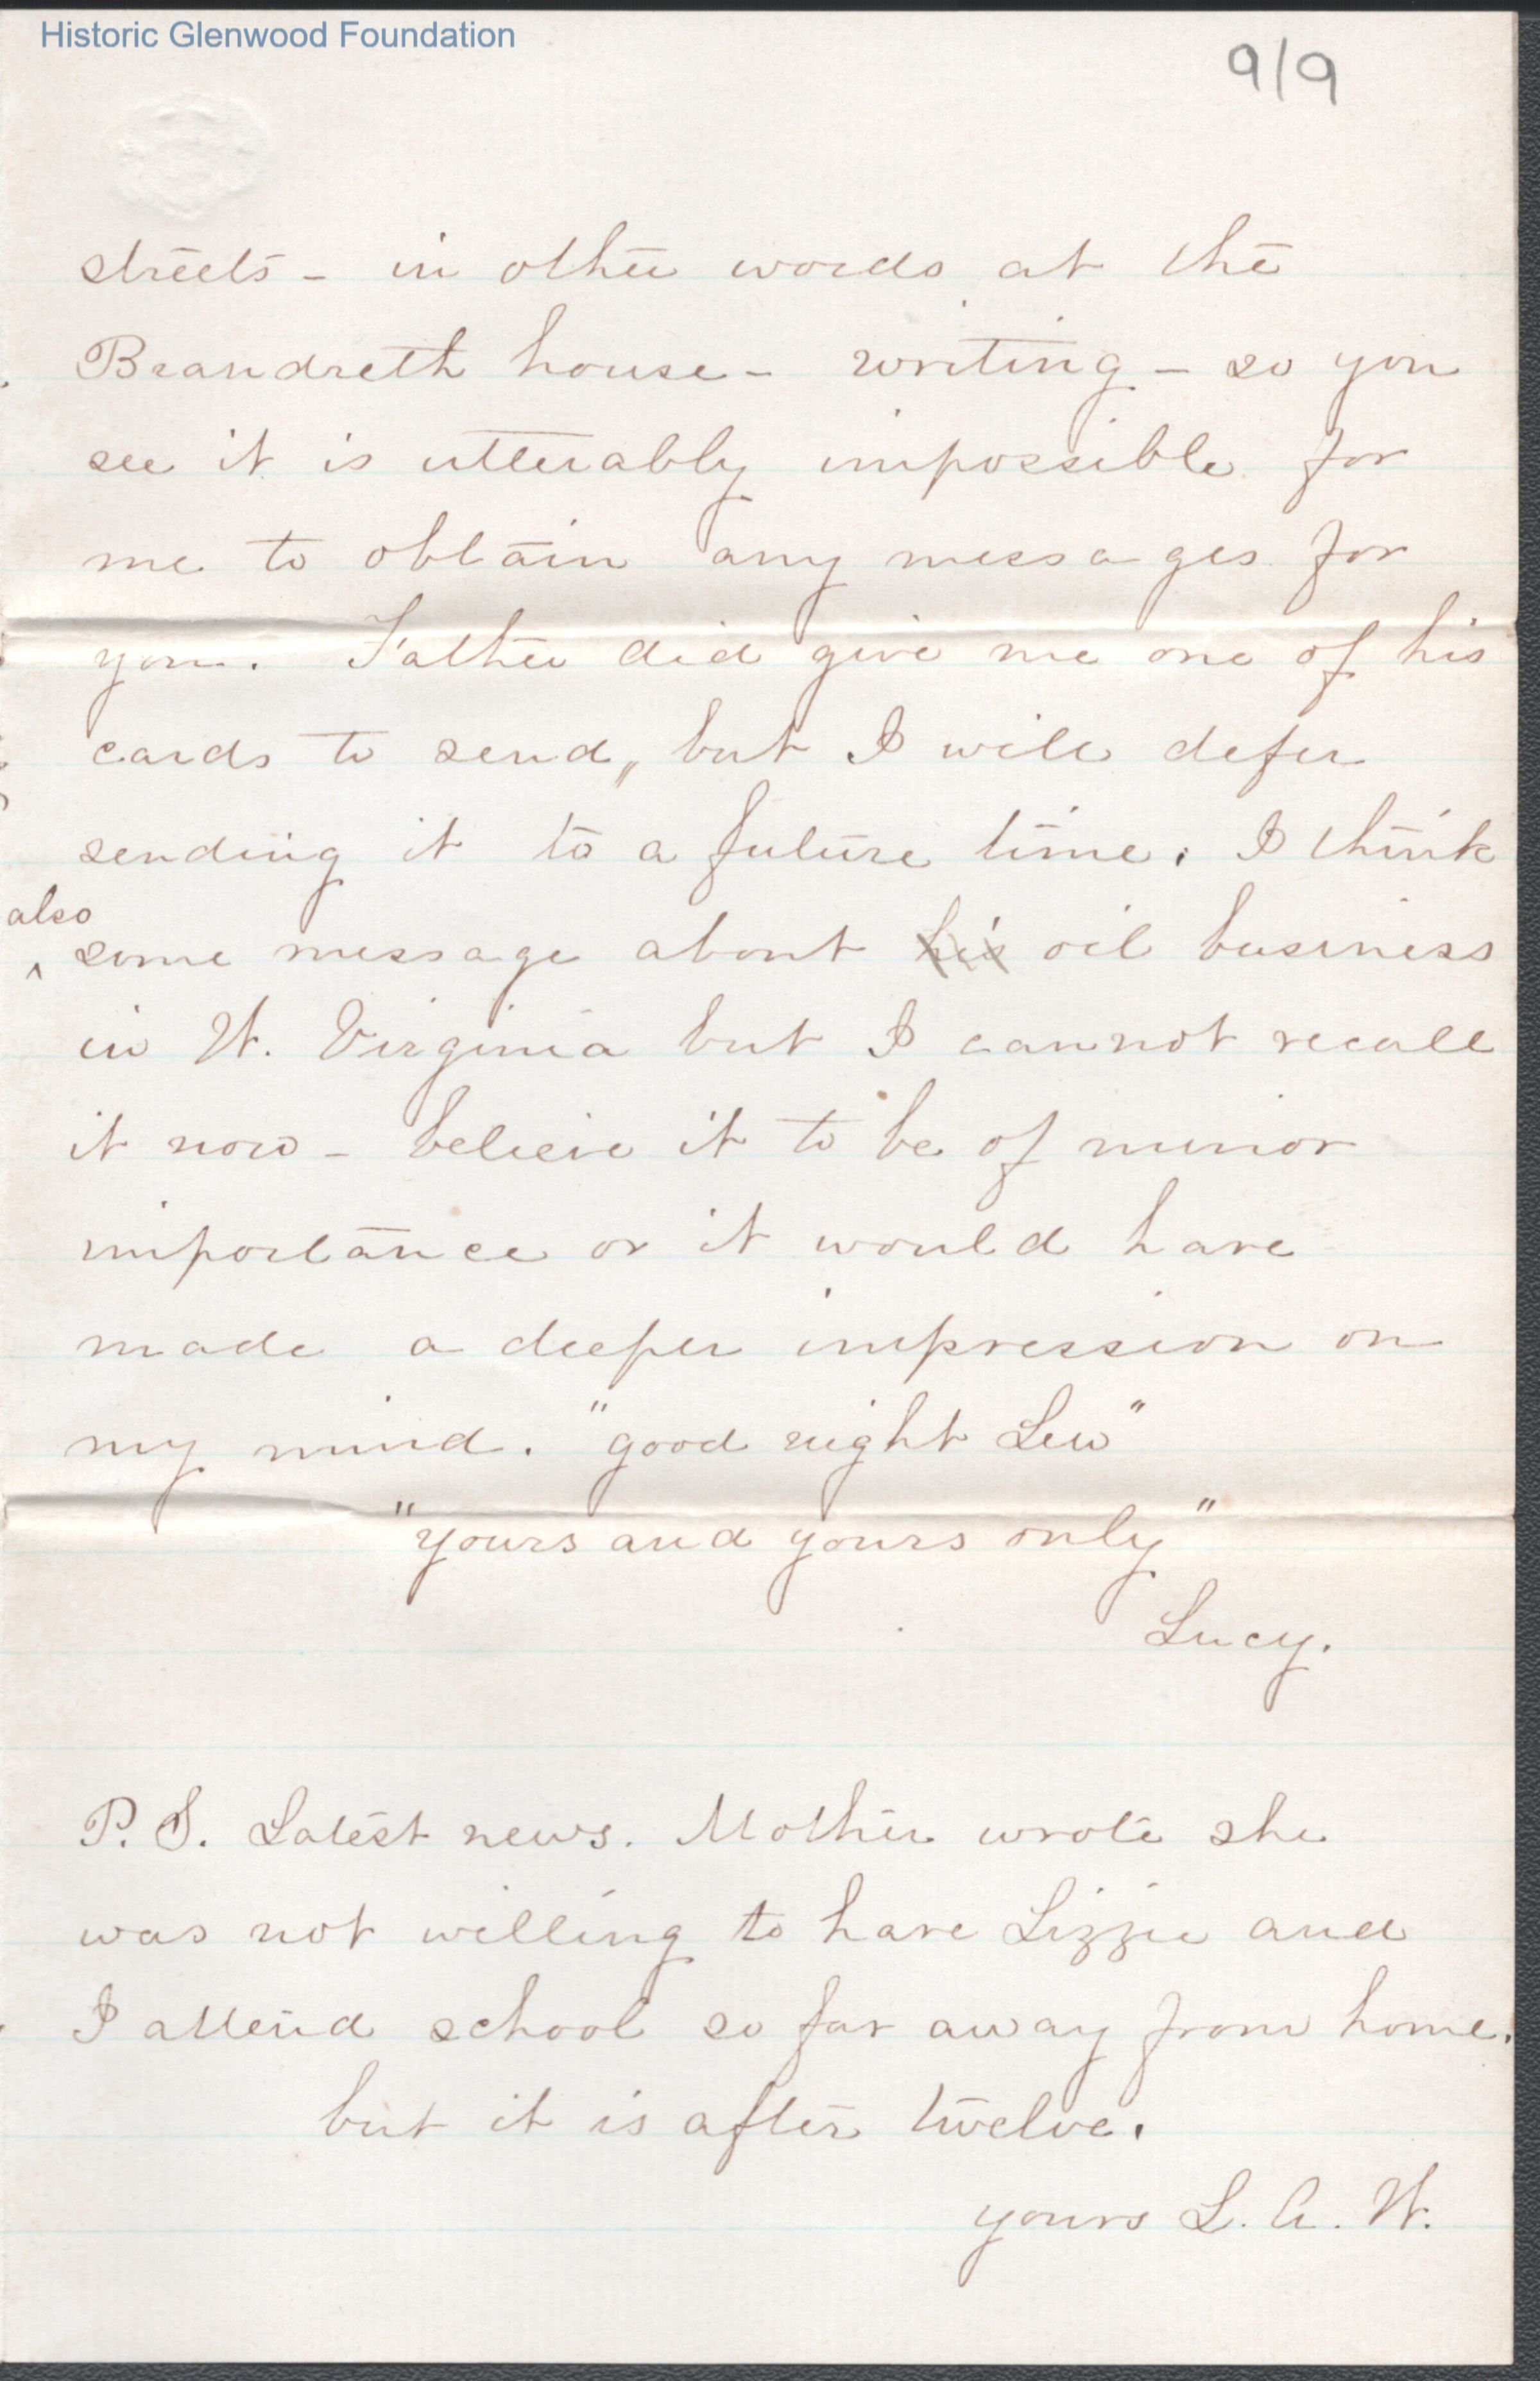 Historic Glenwood Foundation
9/9
streets - in other words at the
Brandreth house - writing - so you
see it is utterably impossible for
me to obtain any messages for
you. Father did give me one of his
cards to send,, but I will defer
sending it to a future time. I think
also
^ some message about his oil business
in W. Virginia but I cannot recall
it now - believe it to be of minor
importance or it would have
made a deeper impression on
my mind. "good night Lew"
"yours and yours only"
Lucy.
P.S. Latest news. Mother wrote she
was not willing to have Lizzie and
I attend school so far away from home.
but it is after twelve.
yours L. A. W.